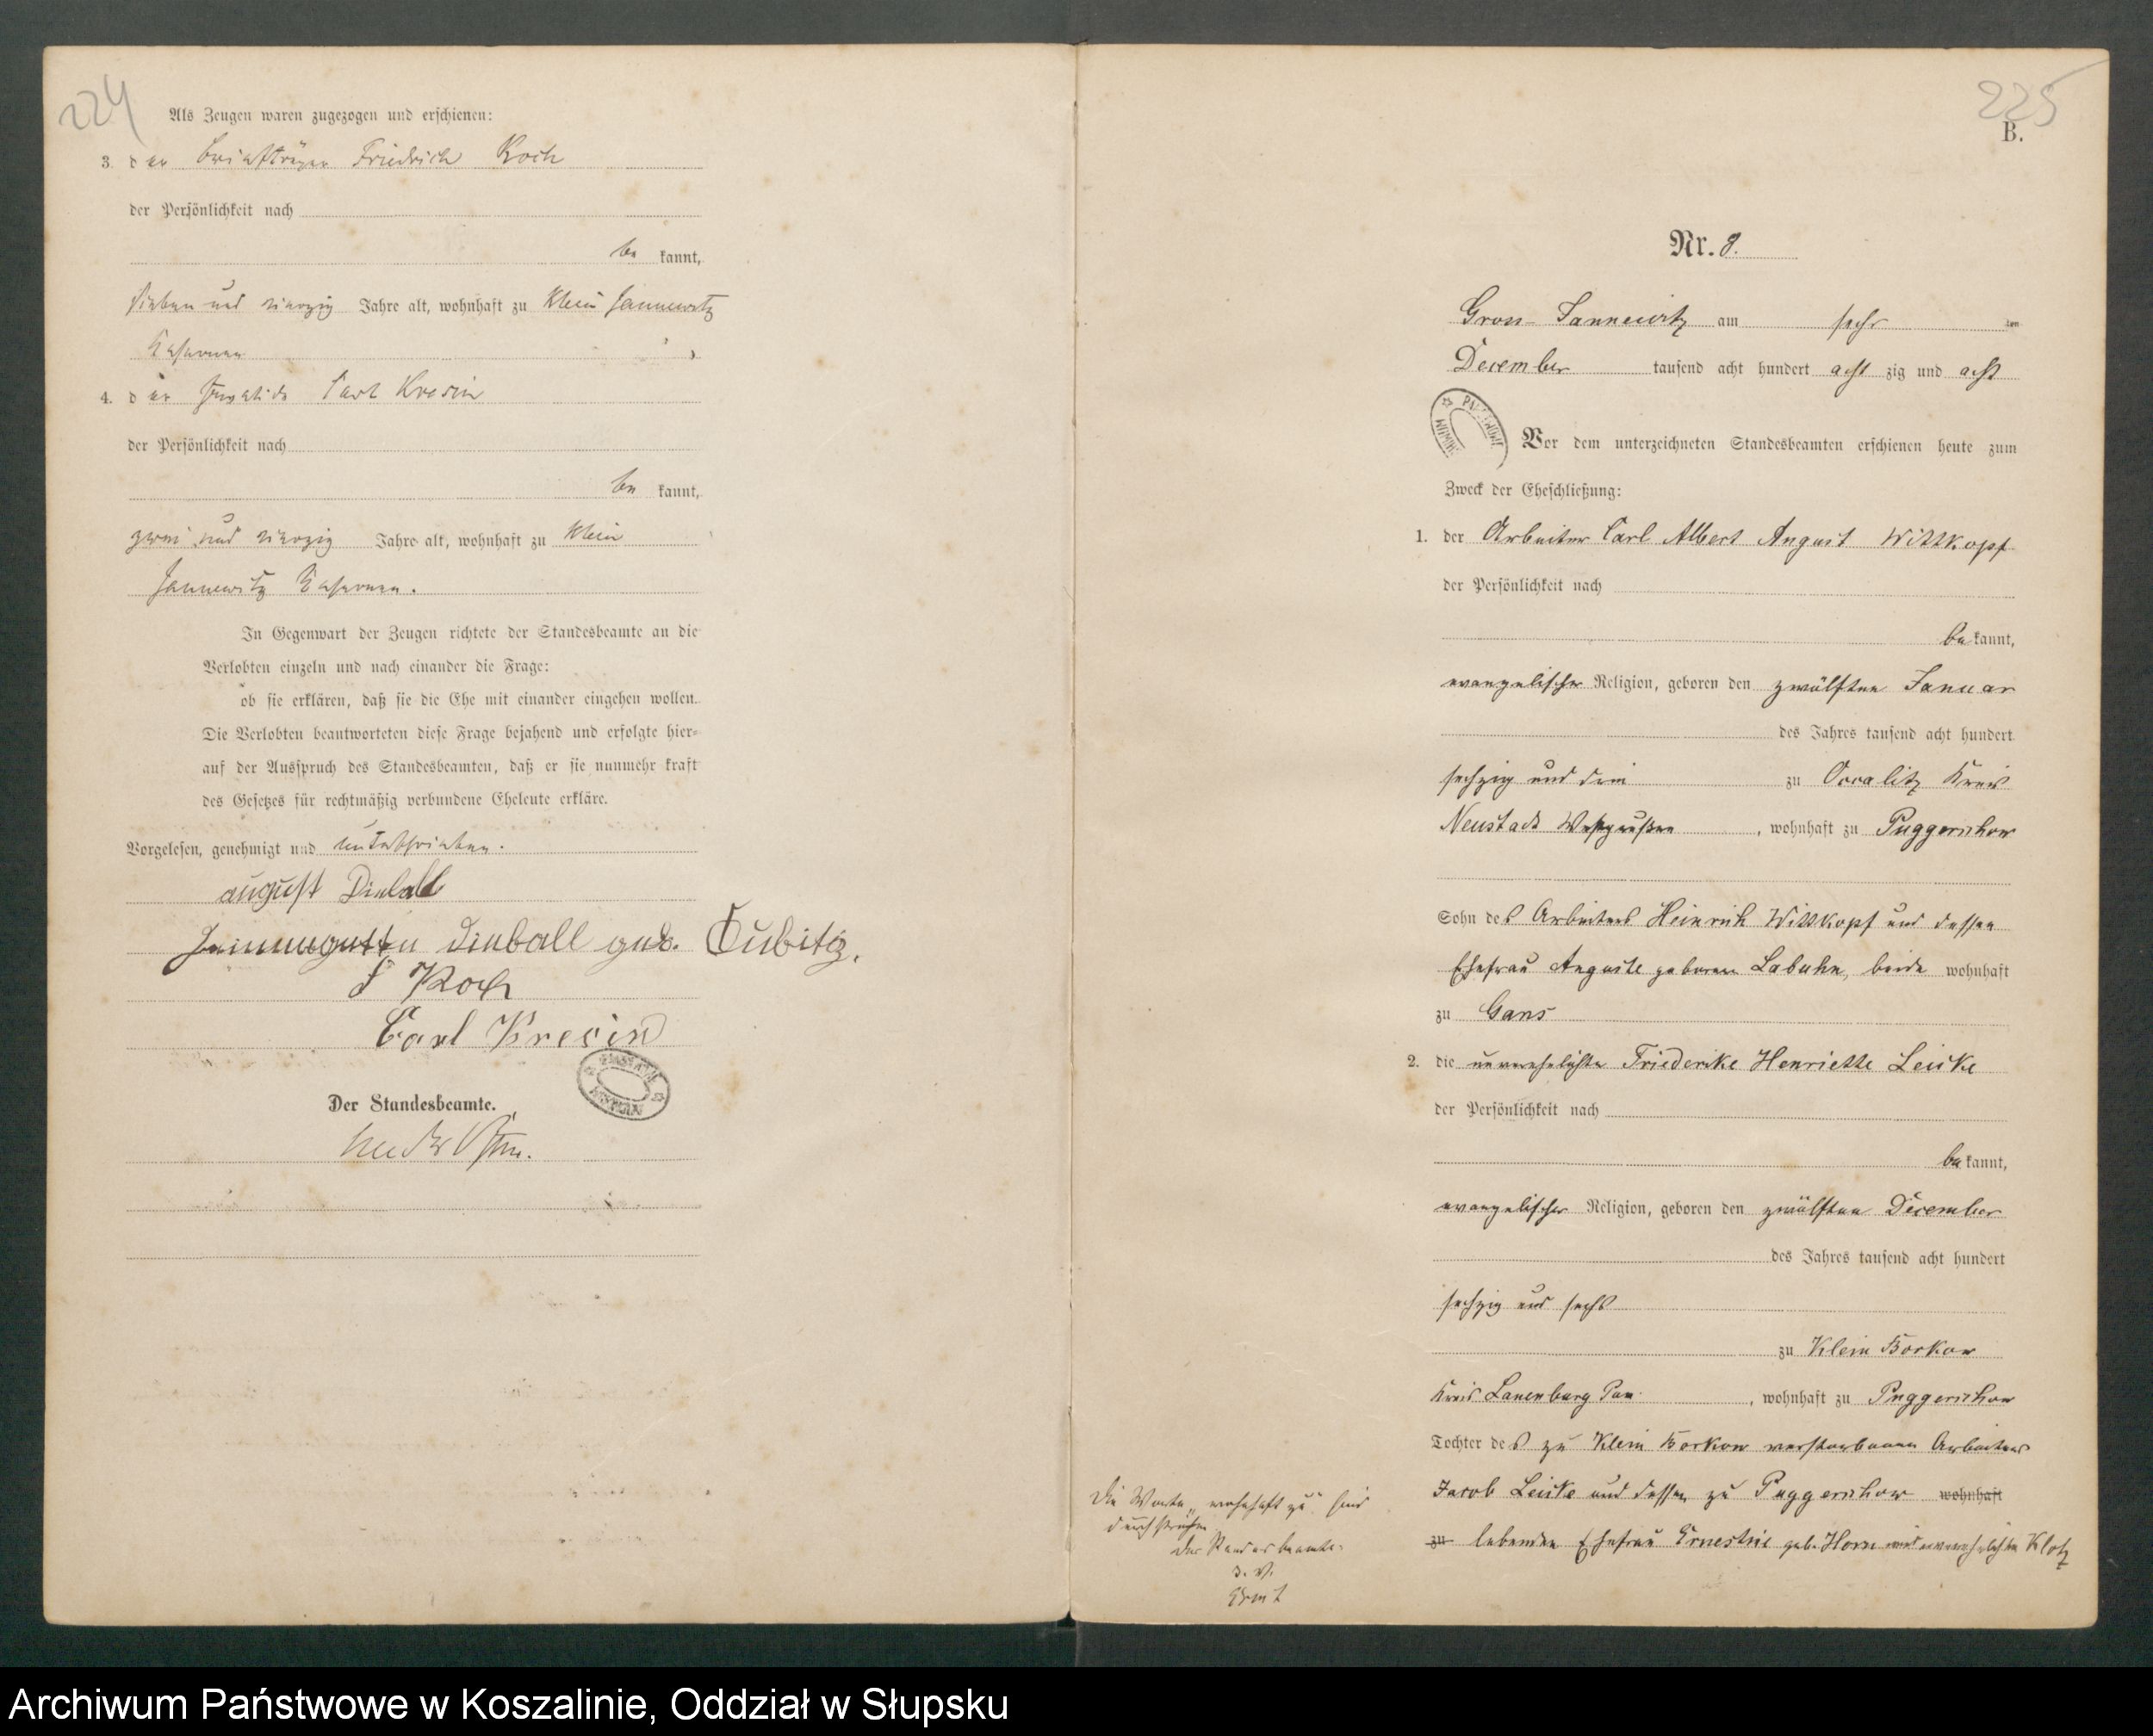 224
Als Zeugen waren zugezogen und erschienen:
3. der Briefträger Friedrich Koch
der Persönlichkeit nach
be kannt,
sieben und vierzig Jahre alt, wohnhaft zu Klein Jannewitz
4. der Invalide Carl Kresin
der Persönlichkeit nach
be kannt,
zwei und vierzig Jahre alt, wohnhaft zu Klein
Jannewitz
In Gegenwart der Zeugen richtete der Standesbeamte an die
Verlobten einzeln und nach einander die Frage:
ob sie erklären, daß sie die Ehe mit einander eingehen wollen.
Die Verlobten beantworteten diese Frage bejahend und erfolgte hier-
auf der Ausspruch des Standesbeamten, daß er sie nunmehr kraft
des Gesetzes für rechtmäßig verbundene Eheleute erkläre.
Vorgelesen, genehmigt und unterschrieben.
august Dieball
dieball geb. Cubitz.
F Koch
Carl Kresin
Der Standesbeamte.
225
B.
Nr. 8.
Gross-Jannewitz am sechs ten
December tausend acht hundert acht zig und acht
Vor dem unterzeichneten Standesbeamten erschienen heute zum
Zweck der Eheschließung:
1. der Arbeiter Carl Albert August Wittkopf
der Persönlichkeit nach
be kannt,
evangelischer Religion, geboren den zwölften Januar
des Jahres tausend acht hundert
sechzig und drei zu Occalitz Kreis
Neustadt Westpreußen, wohnhaft zu Puggerschow
Sohn des Arbeiters Heinrich Wittkopf und dessen
Ehefrau Auguste geborene Labuhn, beide wohnhaft
zu Gans
2. die unverehelichte Friederike Henriette Leiske
der Persönlichkeit nach
be kannt,
evangelischer Religion, geboren den zwölften December
des Jahres tausend acht hundert
sechzig und sechs
zu Klein Borkow
Kreis Lauenburg Pom., wohnhaft zu Puggerschow
Tochter des zu Klein Borkow verstorbenen Arbeiters
Jacob Leiske und dessen zu Puggerschow wohnhaft
zu lebenden Ehefrau Ernestine geb. Horn Klotz
Die Worte "wohnhaft zu" sind
durchstrichen
Der Standesbeamte.
Archiwum Państwowe w Koszalinie, Oddział w Słupsku